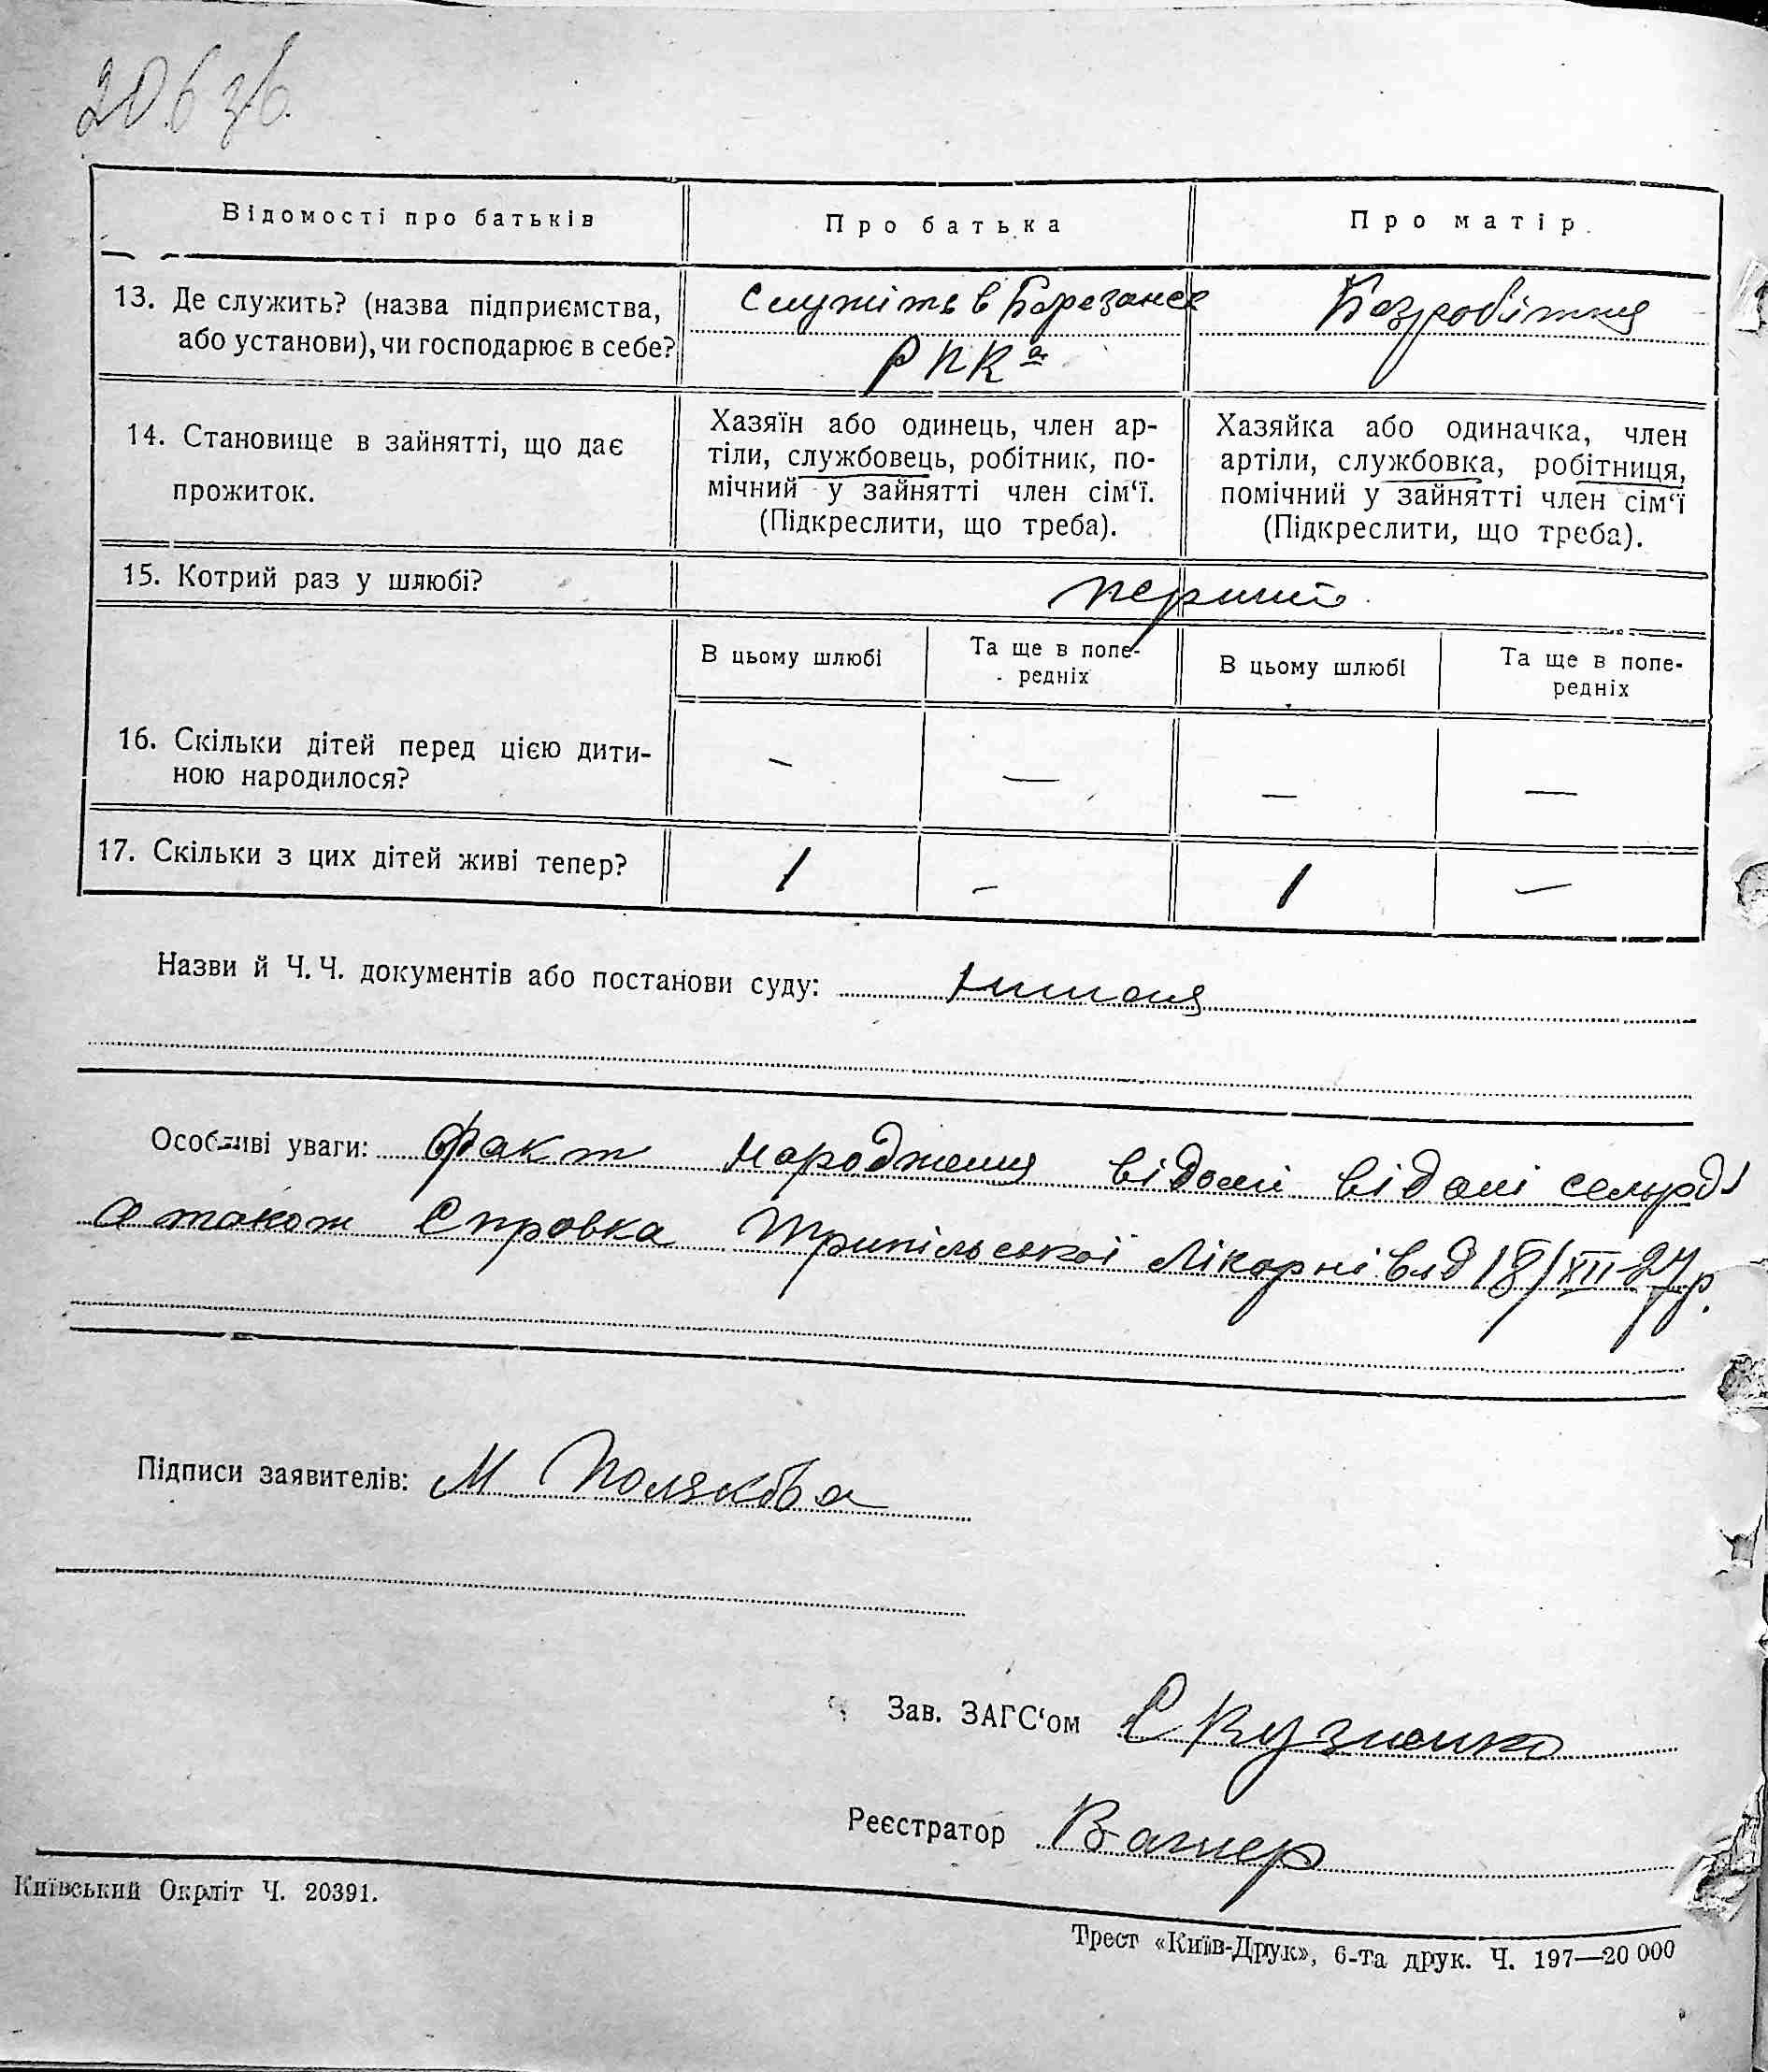 206 зв.
Відомості про батьків
Про батька
Про матір.
13. Де служить? (назва підприємства,
або установи), чи господарює в себе?
Служить в Березансь
РПКа
Безробітня
14. Становище в зайнятті, що дає
прожиток.
Хазяїн або одинець, член ар-
тіли, службовець, робітник, по-
мічний у зайнятті член сім‘ї.
(Підкреслити, що треба).
Хазяйка або одиначка, член
артіли, службовка, робітниця,
помічний у зайнятті член сім‘ї
(Підкреслити, що треба).
15. Котрий раз у шлюбі?
перший
В цьому шлюбі
Та ще в попе-
редніх
В цьому шлюбі
Та ще в попе-
редніх
16. Скільки дітей перед цією дити-
ною народилося?
— — — —
17. Скільки з цих дітей живі тепер?
1 — 1 —
Назви й Ч. Ч. документів або постанови суду:
Особливі уваги: Факт народження відомі сельрді
а також Справка Трипільської Лікарні від 18/XII 27 р.
Підписи заявителів: М Полякова
Зав. ЗАГС‘ом
Реєстратор Вагнер
Київський Окрліт Ч. 20391.
Трест «Київ-Друк», 6-та друк. Ч. 197—20 000